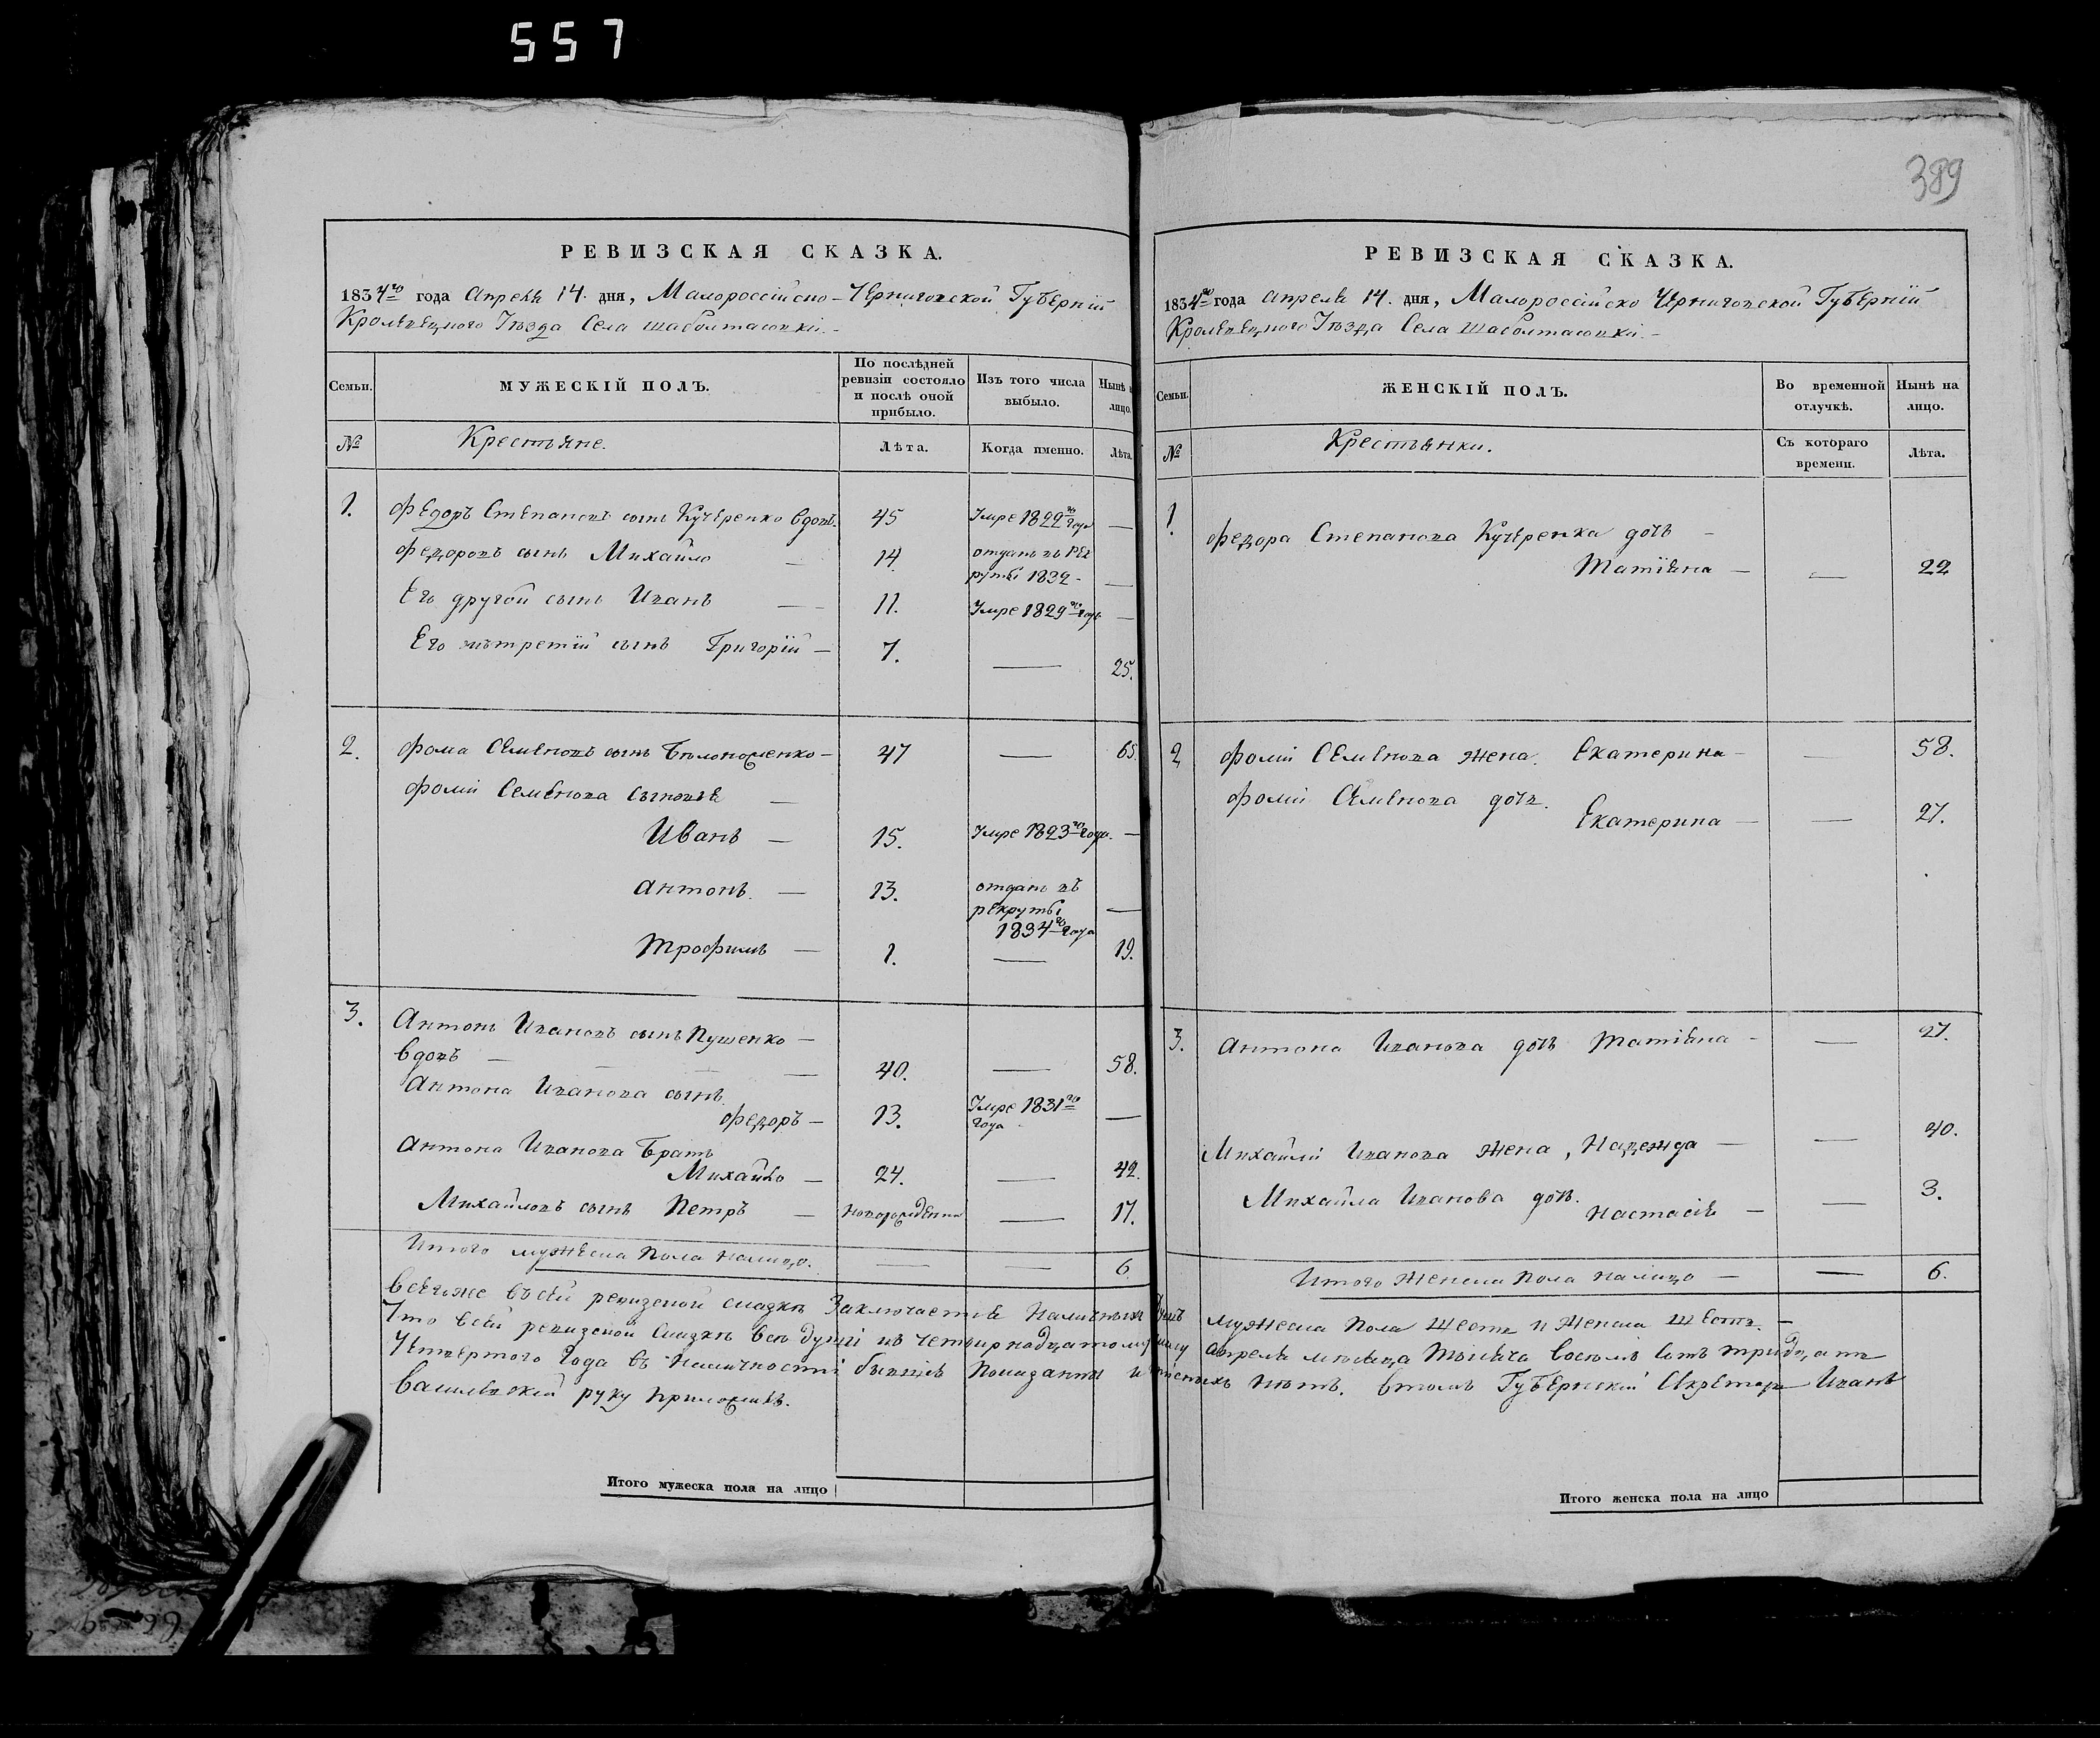 557
389
РЕВИЗСКАЯ СКАЗКА.
1834го года Апреля 14. дня, Малороссійско-Черниговской Губерніи
Кролевецкого Уезда Села Шаболтасовки.
Семьи.
МУЖЕСКІЙ ПОЛЪ.
По послѣдней ревизіи состояло и послѣ оной прибыло.
Изъ того числа выбыло.
Нынѣ на лицо.
№
Крестьяне.
Лѣта.
Когда именно.
Лѣта.
1. Федоръ Степановъ сынъ Кучеренко вдовъ. 45 Умре 1822го года —
Федоровъ сынъ Михайло — 14. отданъ въ рекруты 1832 - —
Его другой сынъ Иванъ — 11. Умре 1829го года —
Его третій сынъ Григорій — 7. — 25.
2. Фома Семеновъ сынъ Беложенко — 47 — 65.
Фомы Семенова сыновья —
Иванъ — 15. Умре 1823го года. —
Антонъ. — 13. отданъ въ рекруты 1834го года —
Трофимъ — 1. — 19.
3. Антонъ Ивановъ сынъ Пушенко —
вдовъ — 40. — 58.
Антона Иванова сынъ
Федоръ — 13. Умре 1831го года —
Антона Иванова братъ
Михайло — 24. — 42.
Михайловъ сынъ Петръ — новорожденный — 17.
Итого мужеска пола налицо. — — 6.
РЕВИЗСКАЯ СКАЗКА.
1834го года Апреля 14. дня, Малороссійско Черниговской Губерніи
Кролевецкого Уезда Села Шаболтасовки. —
Семьи.
ЖЕНСКІЙ ПОЛЪ.
Во временной отлучкѣ.
Нынѣ на лицо.
№
Крестьянки.
Съ котораго времени.
Лѣта.
1. Федора Степанова Кучеренка дочь —
Татіяна — — 22
2 Фомы Семенова жена. Екатерина — — 58.
Фомы Семенова дочь.
Екатерина — — 27.
3. Антона Иванова дочь Татіяна — — 27.
Михайлы Иванова жена, Надежда — — 40.
Михайла Иванова дочь.
Настасія — — 3.
Итого женска пола налицо — — 6.
Всего же въ сей ревизской сказкѣ заключается наличныхъ душъ мужеска пола шесть и женска шесть. —
Что в сей ревизской сказкѣ все души къ четырнадцатому числу апреля месяца тысяча восемь сотъ тридцать
четвертого года въ наличности бывшіе показаны и нетъ. в томъ Губернский Секретарь Иванъ
Василевский руку приложилъ.
Итого мужеска пола на лицо
Итого женска пола на лицо